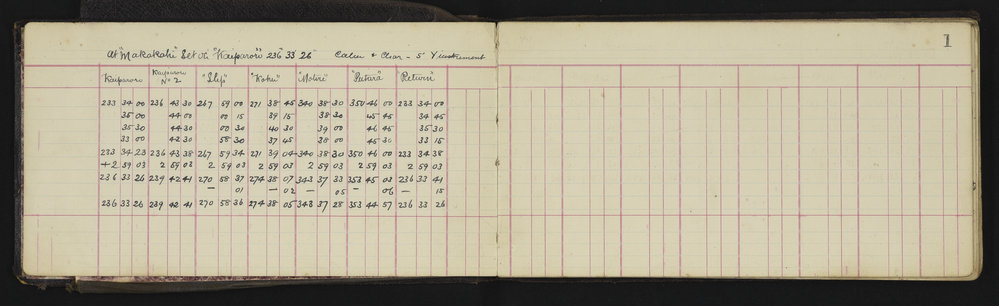 1
At "Makakahi" Set on "Kaiparoro" 236° 33' 26" Calm & Clear - 5" Instrument
Kaiparoro Kaiparoro No 2 "Slip" "Koku" "Mohri" "Return"
233 34 00 236 43 30 267 59 00 271 38 45 340 38 30 350 46 00 233 34 00
35 00 44 00 00 15 39 15 38 30 45 45 34 45
35 30 44 30 00 30 40 30 39 00 46 45 35 30
33 00 42 30 58 30 37 45 38 00 45 30 33 15
233 34 23 236 43 38 267 59 34 271 39 04 340 38 30 350 46 00 233 34 38
+2 59 03 2 59 03 2 59 03 2 59 03 2 59 03 2 59 03 2 59 03
236 33 26 239 42 41 270 58 37 274 38 07 343 37 33 353 45 03 236 33 41
— 01 — 02 — 05 — 06 — 15
236 33 26 239 42 41 270 58 36 274 38 05 343 37 28 353 44 57 236 33 26